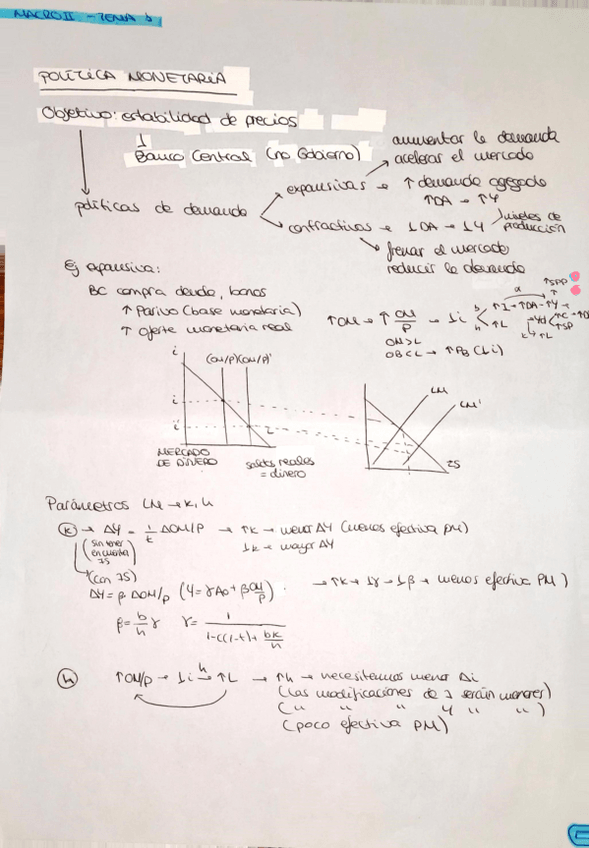 MACRO II - TEMA 6
POLÍTICA MONETARIA
Objetivo: estabilidad de precios
↓
Banco Central (no Gobierno)
aumentar la demanda
acelerar el mercado
políticas de demanda
expansivas → ↑ demanda agregada
↑DA → ↑Y
contractivas → ↓DA → ↓Y
niveles de producción
frenar el mercado
reducir la demanda
Ej expansiva:
BC compra deuda, bonos
↑ Pasivo (base monetaria)
↑ oferta monetaria real
↑OM → ↑ OM/P → ↓i
b ↑I → ↑DA → ↑Y
h ↑L
α
↑SPP
Yd
↑C → ↑D
↑SP
k ↑L
OM>L
OB<L → ↑PB (↓i)
i (OM/P) (OM/P)'
i
i'
L
MERCADO DE DINERO
saldos reales = dinero
LM
LM'
IS
Parámetros LM → k, h
(k) → ΔY = 1/k ΔOM/P → ↑k → menor ΔY (menos efectiva PM)
(sin tener en cuenta IS)
↓k → mayor ΔY
(con IS)
ΔY = β ΔOM/P (Y = γAo + β OM/P) → ↑k → ↓γ → ↓β → menos efectiva PM)
β = b/h γ γ = 1 / 1-c(1-t)+ bk/h
(h) ↑OM/P → ↓i h→ ↑L → ↑h → necesitamos menor Δi
(las modificaciones de I serán menores)
(" " " Y " ")
(poco efectiva PM)